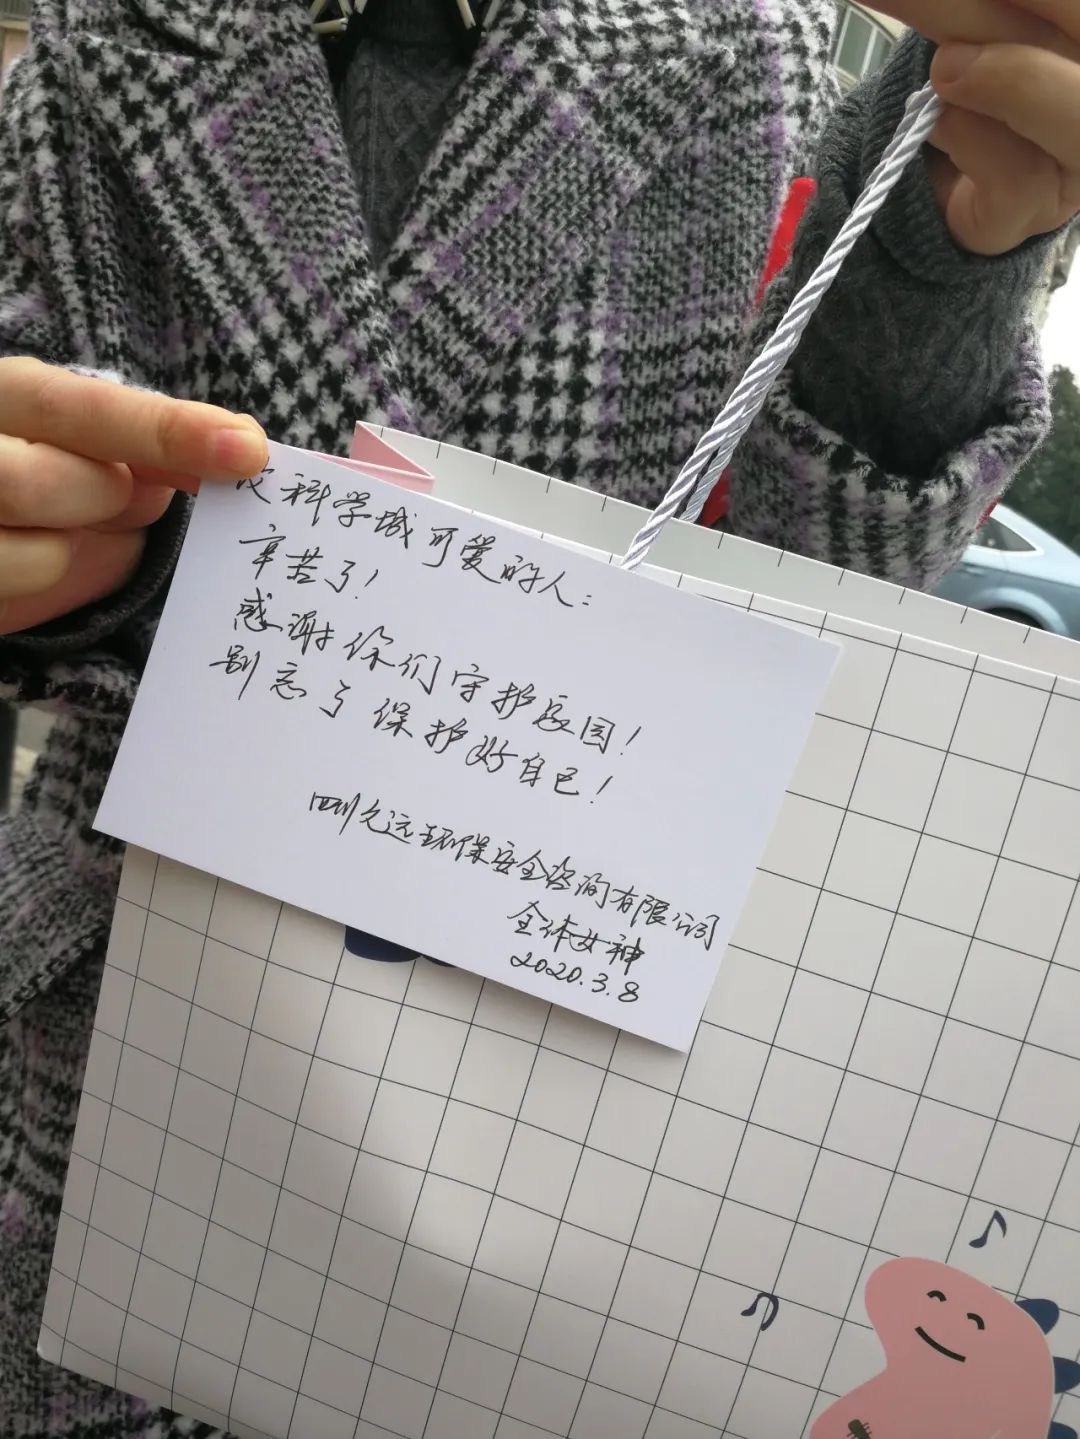 科学城可爱的人：
辛苦了！
感谢你们守护家园！
别忘了保护好自己！
四川久远环保安全咨询有限公司
全体女神
2020.3.8